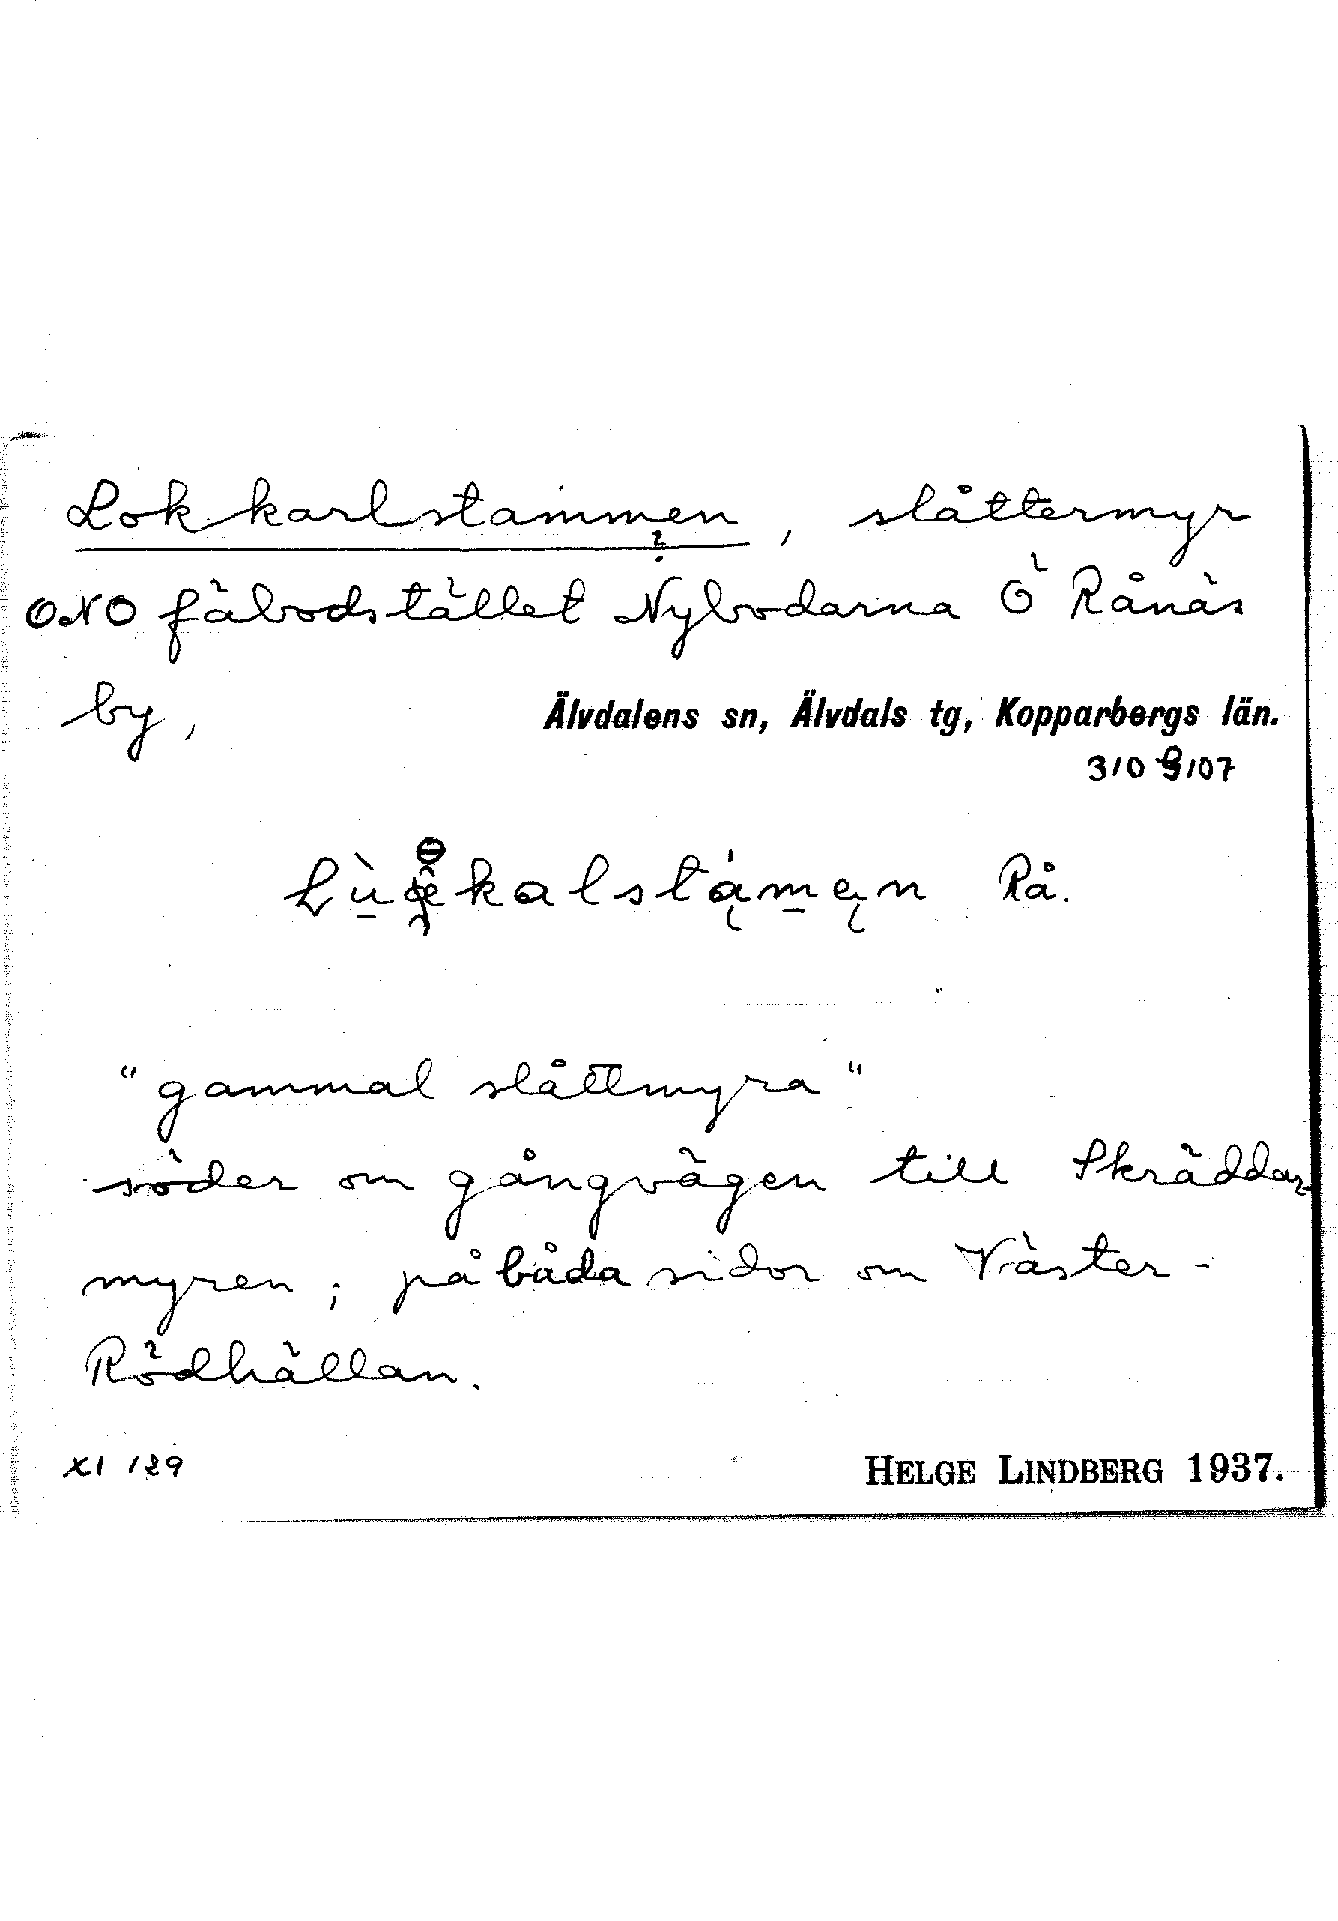 Lokkarlstammen, slåttermyr
ONO fäbodstället Nybodarna Ö Rånäs
by,
Älvdalens sn, Älvdals tg, Kopparbergs län.
Rå.
"gammal slåttmyra"
söder om gångvägen till Skräddar-
myren; på båda sidor om Väster-
Rödhällan.
XI 129
HELGE LINDBERG 1937.